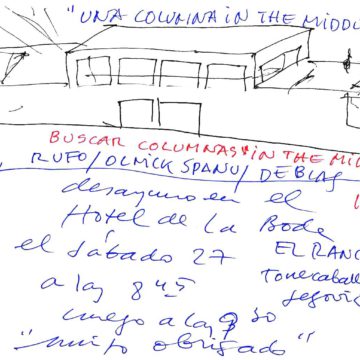 "UNA COLUMNA IN THE MIDDL
BUSCAR COLUMNAS IN THE MI
RUFO/OLNICK SPANU/DEBLAS
desayuno en el
Hotel de La Boda
el sábado 27
EL RANC
Torrecaball
segovi
a las 8 45
luego a las 9 30
"muito obrigado"